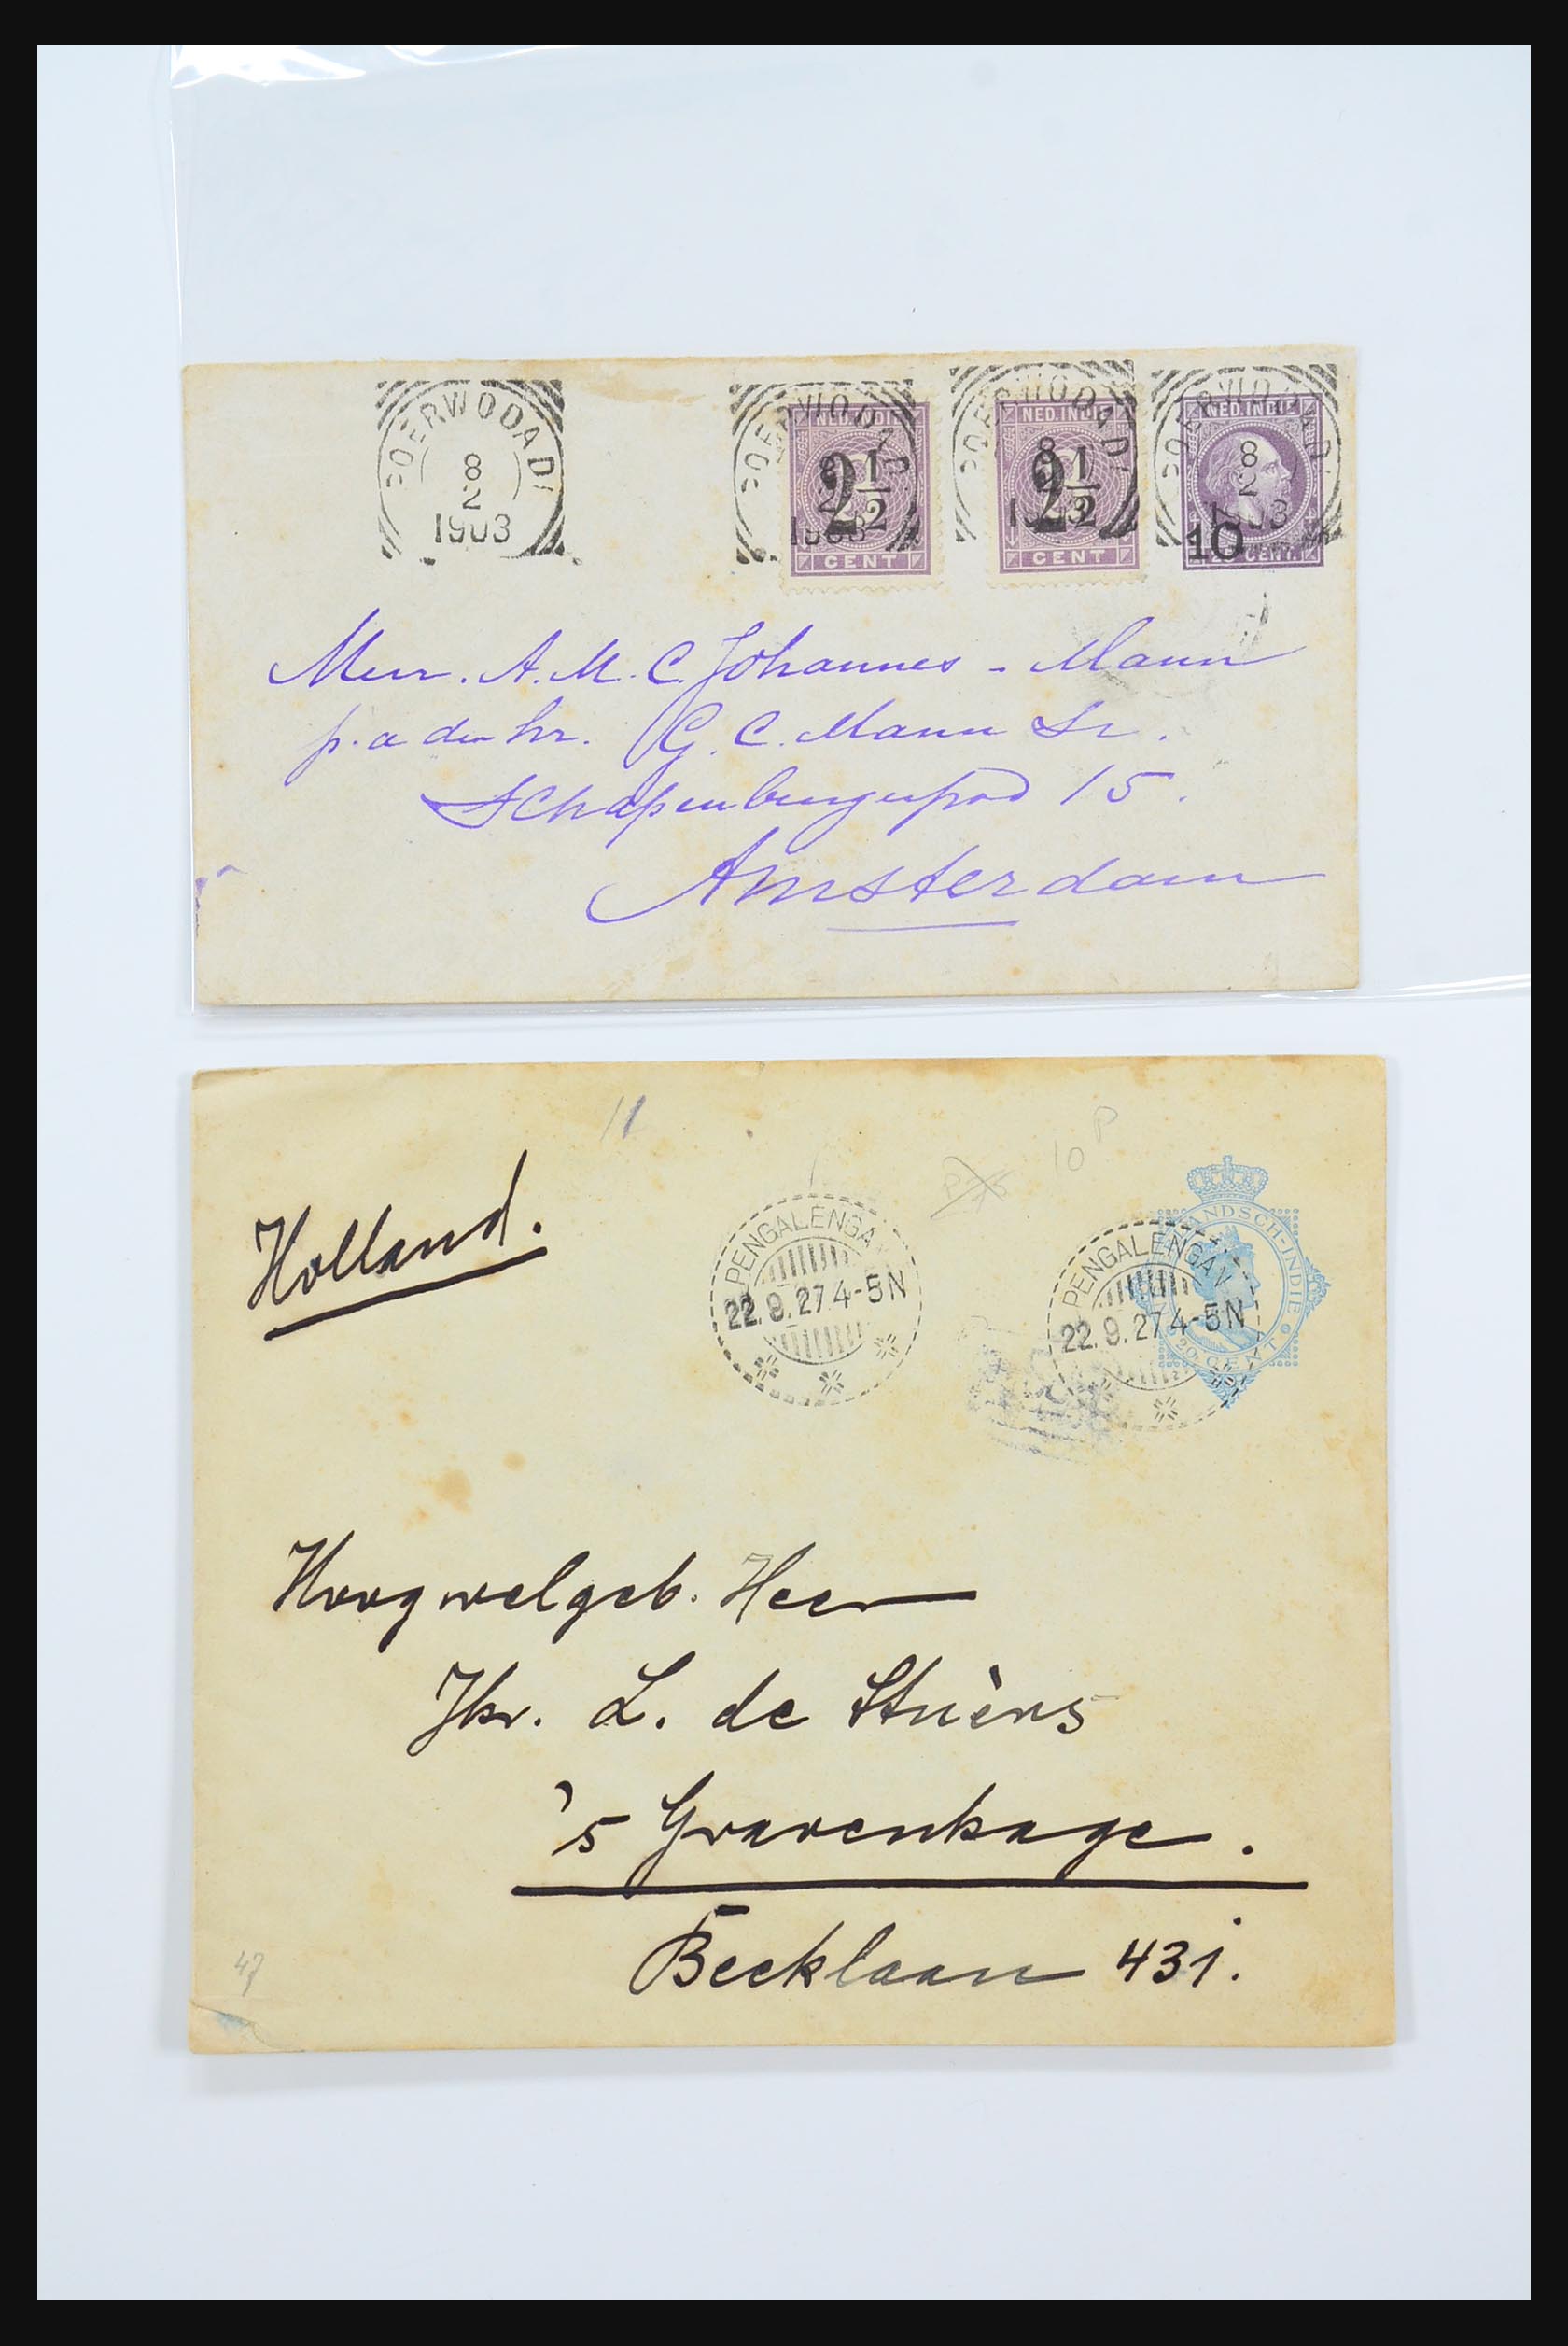 POERWODADI
8
2
1903
POERWODADI
8
2
1903
NED. INDIE
2½
CENT
POERWODADI
8
2
1903
NED. INDIE
2½
CENT
POERWODADI
8
2
1903
NED. INDIE
10
CENT
Mevr. A. M. C. Johannes - Mann
p. a den hr. G. C. Mann Sr.
Schapenburgerpad 15.
Amsterdam
11
10 P
Holland.
PENGALENGAN
22.9.27 4-5N
PENGALENGAN
22.9.27 4-5N
NEDERLANDSCH-INDIE
20 CENT
Hoogwelgeb. Heer
Jkr. L. de Stuèrs
's Gravenhage.
Beeklaan 431.
47